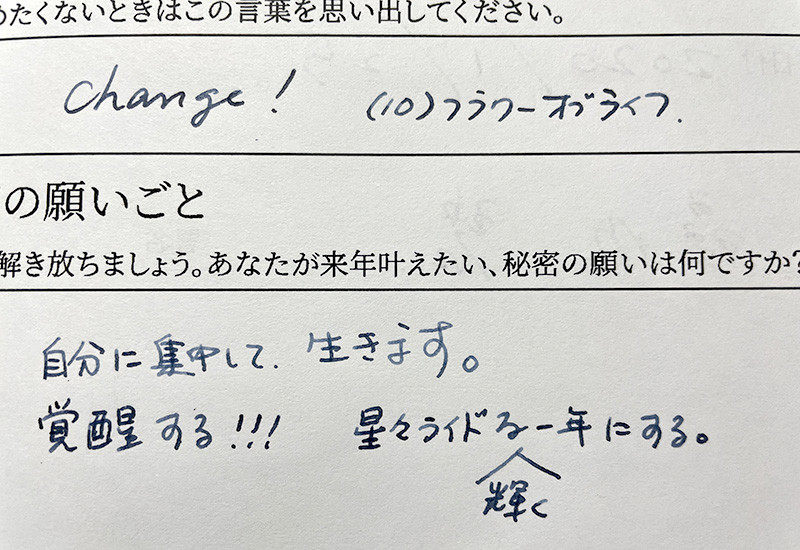 めたくないときはこの言葉を思い出してください。
Change! (10)フラワーオブライフ.
の願いごと
解き放ちましょう。あなたが来年叶えたい、秘密の願いは何ですか?
自分に集中して. 生きます。
覚醒する!!! 星々ライドな一年にする。
輝く